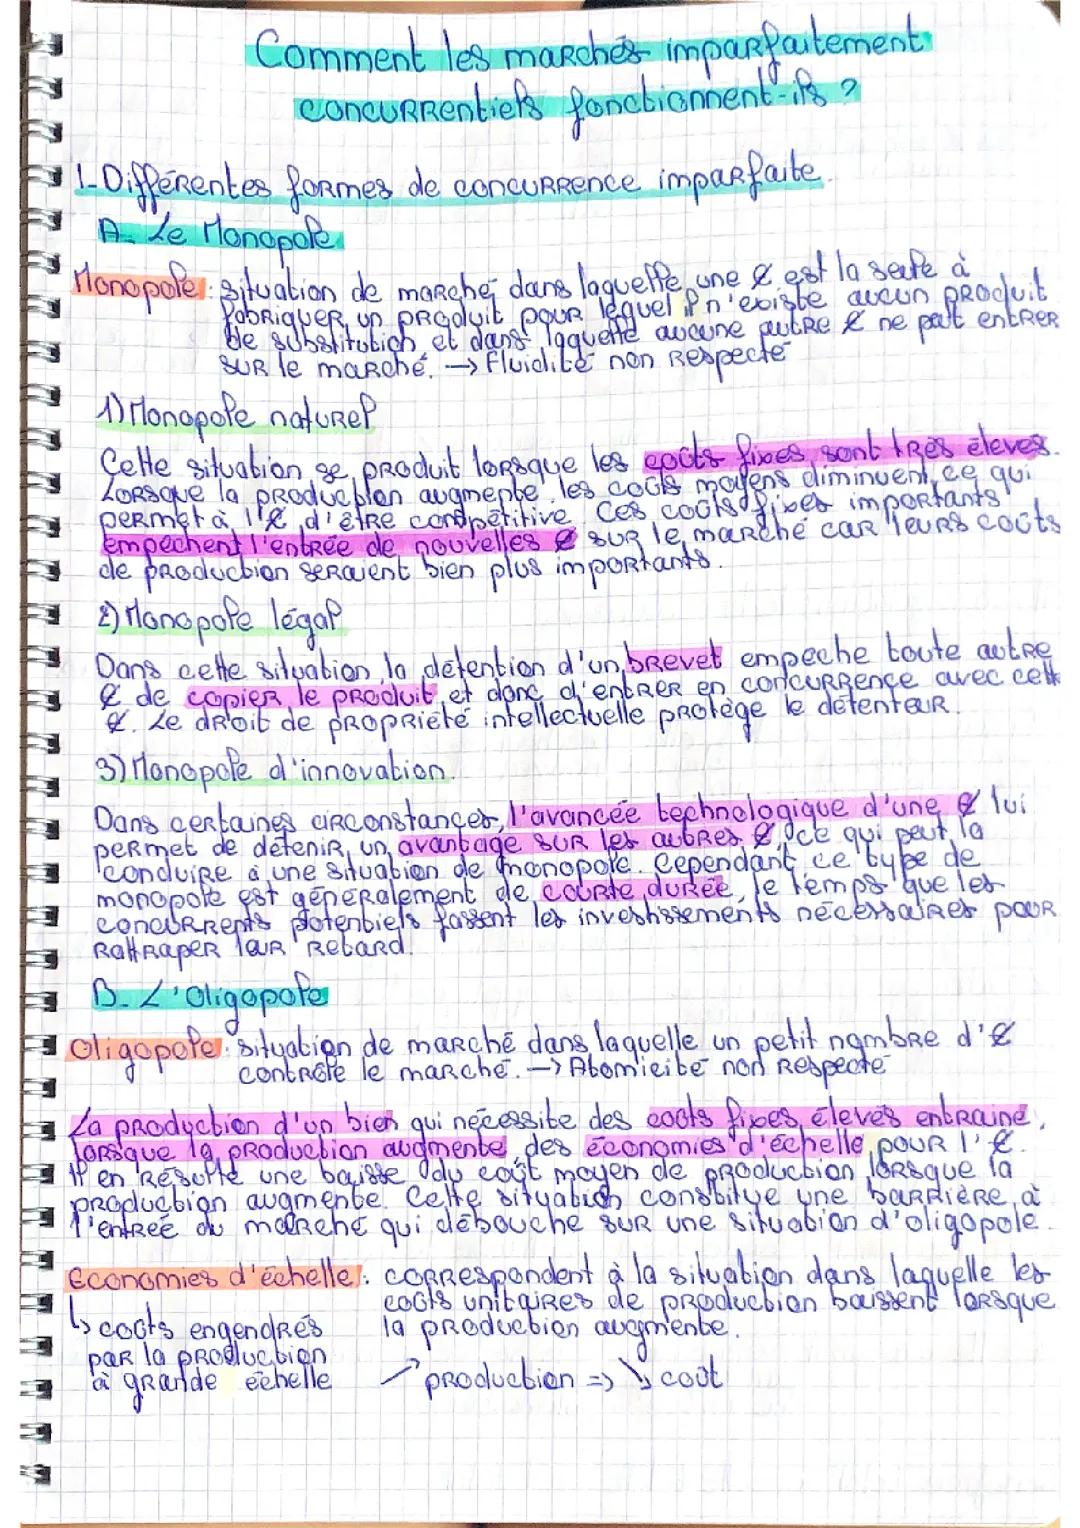 Comment les marchés imparfaitement
concurrentiels fonctionnent-ils ?
1-Différentes formes de concurrence imparfaite.
A- Le Monopole
Monopole : situation de marché dans laquelle une E est la seule à
fabriquer un produit pour lequel il n'existe aucun produit
de substitution et dans laquelle aucune autre E ne peut entrer
sur le marché. → Fluidité non respecté
1) Monopole naturel
Cette situation se produit lorsque les coûts fixes sont très élevés.
Lorsque la production augmente, les coûts moyens diminuent, ce qui
permet à l'E d'être compétitive. Ces coûts fixes importants
empêchent l'entrée de nouvelles E sur le marché car leurs coûts
de production seraient bien plus importants.
2) Monopole légal
Dans cette situation, la détention d'un brevet empeche toute autre
E de copier le produit et donc d'entrer en concurrence avec cette
E. Le droit de propriété intellectuelle protège le détenteur.
3) Monopole d'innovation.
Dans certaines circonstances, l'avancée technologique d'une E lui
permet de détenir un avantage sur les autres E, ce qui peut la
conduire à une situation de monopole. Cependant ce type de
monopole est généralement de courte durée, le temps que les
concurrents potentiels fassent les investissements nécessaires pour
rattraper leur retard.
B- L'Oligopole
Oligopole : situation de marché dans laquelle un petit nombre d'E
contrôle le marché. → Atomicité non respecté
La production d'un bien qui nécessite des coûts fixes élevés entraine,
lorsque la production augmente, des économies d'échelle pour l'E.
Il en résulte une baisse du coût moyen de production lorsque la
production augmente. Cette situation constitue une barrière à
l'entrée du marché qui débouche sur une situation d'oligopole.
Economies d'échelle : correspondent à la situation dans laquelle les
coûts unitaires de production baissent lorsque
la production augmente.
↳ coûts engendrés
par la production
à grande échelle
↗ production => ↘ coût